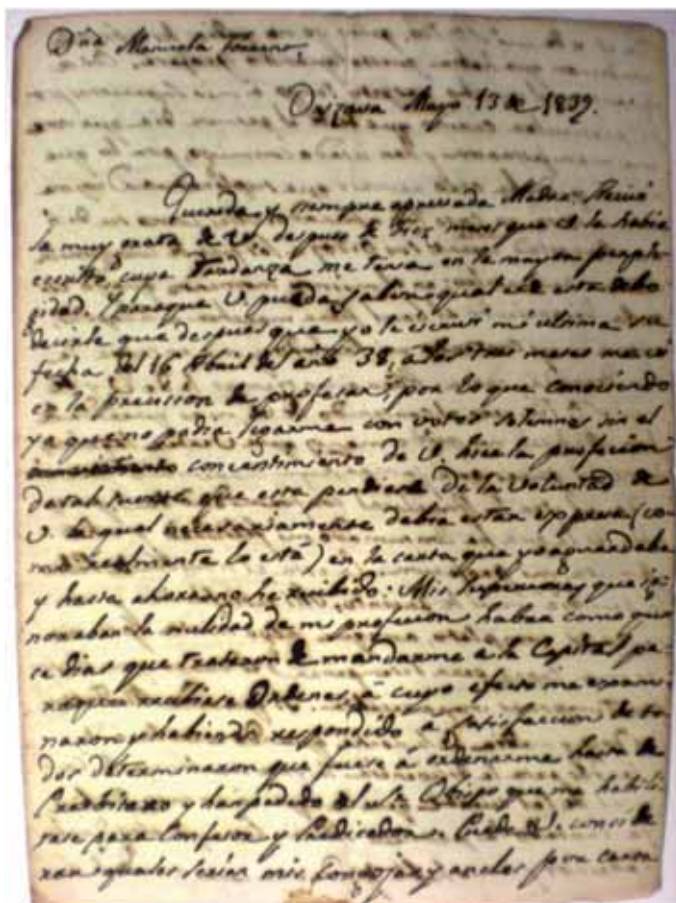 Dña Manuela
Mayo 13 de 1839.
Querida y siempre apreciada Madre: Recivi
la muy grata de V. despues de trez meses que V. la habia
escrito cuya tardanza me tenia en la mayor perple-
gidad. Y paraque V. pueda saber qual era esta debo
decirle que despues que yo le escrivi mi ultima su
fecha del 16 Abril del año 38, a los tres meses me vi
en la precision de profesar, por lo que conociendo
ya que no podia ligarme con votos solemnes sin el
concentimiento de V. hice la profecion
de tal suerte que esta pendiente de la voluntad de
V. la qual necesariamente debia estar expresa (co-
mo realmente lo está) en la carta que yo aguardaba
y hasta ahora no he recibido. Mis Superiores que ig-
noraban la nulidad de mi profecion habra como quin
ce dias que trataron de mandarme a la Capital pa-
raque recibiese Ordenes, á cuyo efecto me exami-
naron y habiendo respondido á satisfaccion de to-
dos determinaron que fuese á ordenarme hasta de
Presbitero y han pedido al Sr. Obispo que me habili-
tase para Confesor y Predicador. Puede V. conside-
rar quales serian mis congojas y anclos pora carta